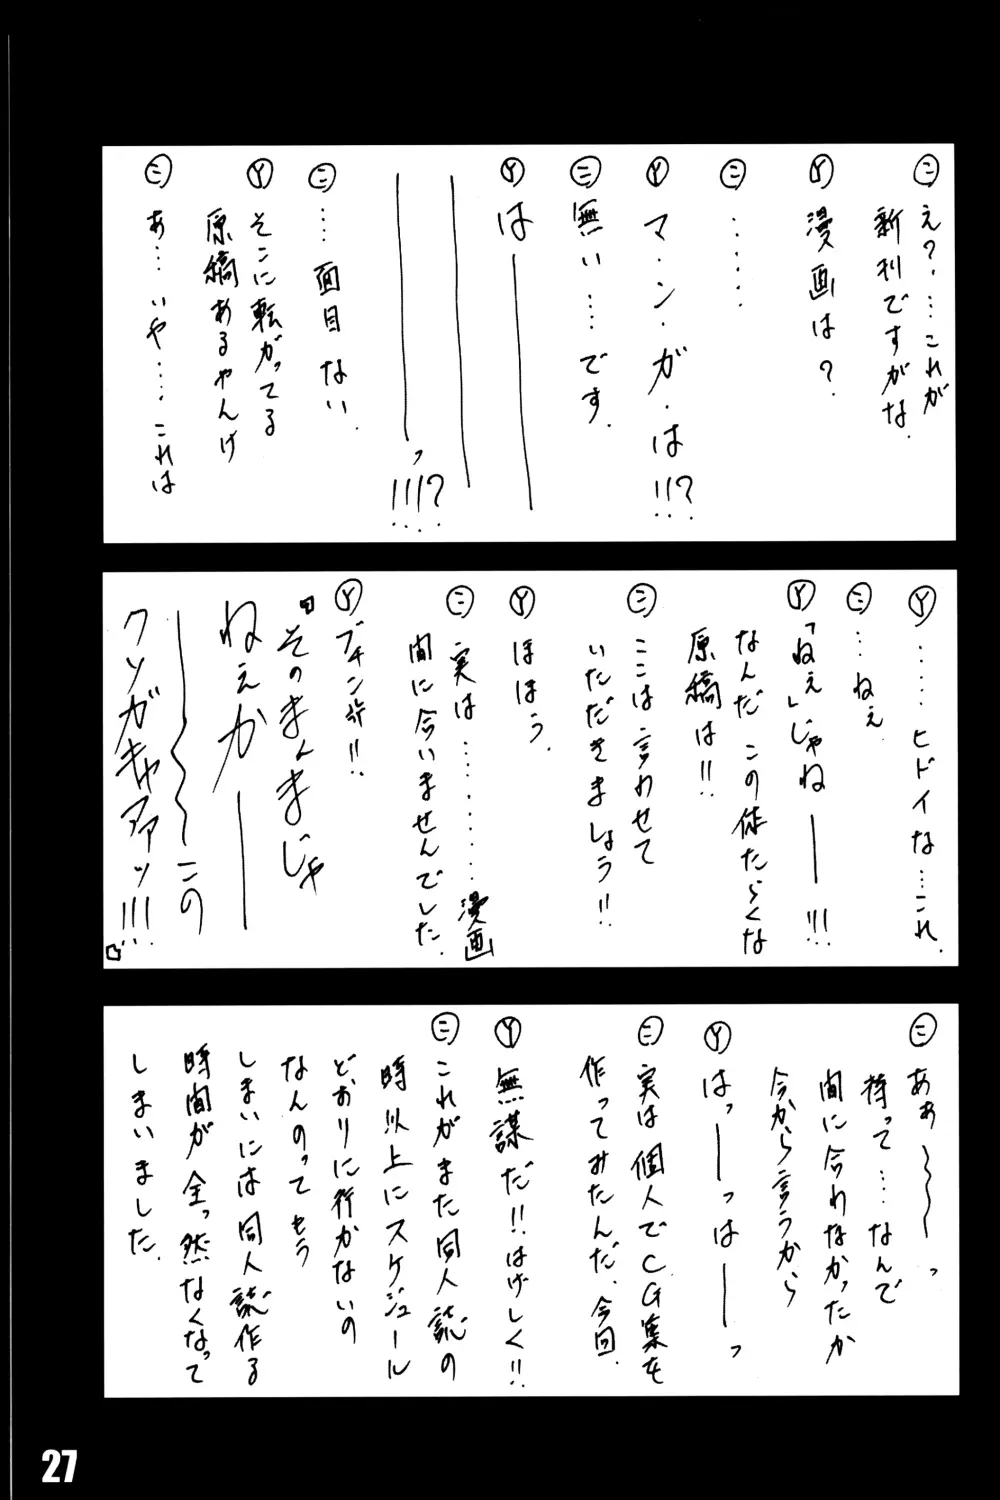 ㊁え?……これが
新刊ですがな.
Ⓨ漫画は?
㊁……
Ⓨマ・ン・ガ・は!!?
㊁無い…です.
Ⓨは――
――――っ!!!?
㊁…面目ない.
Ⓨそこに転がってる
原稿あるやんけ
㊁あ…いや…これは
Ⓨ……ヒドイな…これ.
㊁…ねぇ
Ⓨ「ねぇ」じゃね――!!!
なんだこの体たらくな
原稿は!!
㊁ここは言わせて
いただきましょう!!
Ⓨほほう.
㊁実は………漫画
間に合いませんでした.
Ⓨブチン許!!
"そのまんまじゃ
ねぇか――
――〜〜この
クソガキャアァッ!!!"
㊁あぁ〜〜〜っ
待って…なんで
間に合わなかったか
今から言うから
Ⓨはっ――っは――っ
㊁実は個人でCG集を
作ってみたんだ.今回.
Ⓨ無謀だ!!はげしく!!
㊁これがまた同人誌の
時以上にスケジュール
どおりに行かないの
なんのってもう
しまいには同人誌作る
時間が全っ然なくなって
しまいました.
27